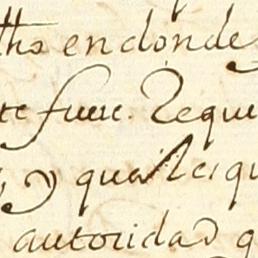 ths en donde
te fuere. Reque
y qualesqu
autoridad q